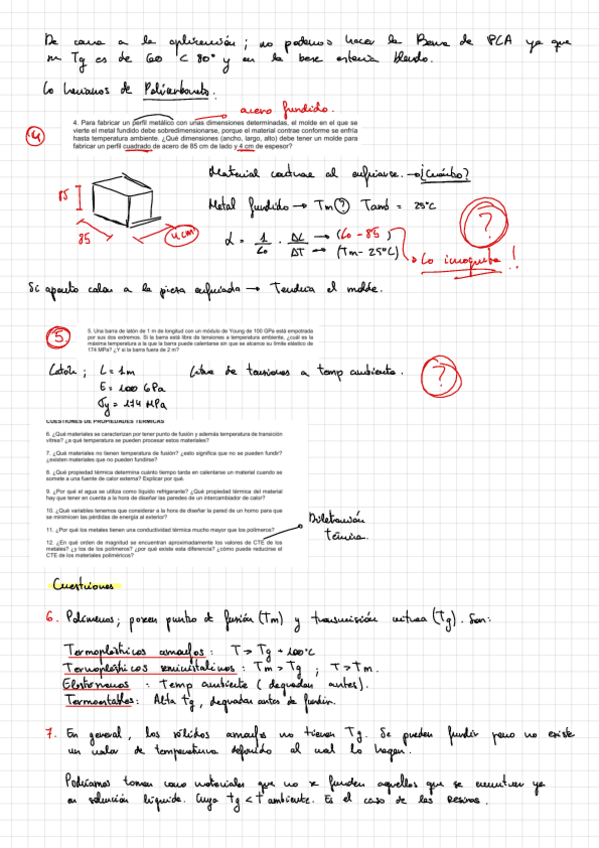 De cara a la aplicación; no podemos hacer la Barra de PCA ya que
su Tg es de 60 < 80° y en la base estaría blando.
Lo haríamos de Policarbonato.
acero fundido.
4
4. Para fabricar un perfil metálico con unas dimensiones determinadas, el molde en el que se
vierte el metal fundido debe sobredimensionarse, porque el material contrae conforme se enfría
hasta temperatura ambiente. ¿Qué dimensiones (ancho, largo, alto) debe tener un molde para
fabricar un perfil cuadrado de acero de 85 cm de lado y 4 cm de espesor?
Material contrae al enfriarse. → ¿Cuánto?
85
85
4 cm
Metal fundido → Tm ? Tamb = 25°C
?
α = 1/Lo · ΔL/ΔT → (Lo - 85) → (Tm - 25°C)
Lo incognita!
Si aporto calor a la pieza enfriada → Tendría el molde.
5.
5. Una barra de latón de 1 m de longitud con un módulo de Young de 100 GPa está empotrada
por sus dos extremos. Si la barra está libre de tensiones a temperatura ambiente, ¿cuál es la
máxima temperatura a la que la barra puede calentarse sin que se alcance su límite elástico de
174 MPa? ¿Y si la barra fuera de 2 m?
Latón; L = 1m Libre de tensiones a temp ambiente.
?
E = 100 GPa
σy = 174 MPa
CUESTIONES DE PROPIEDADES TÉRMICAS
6. ¿Qué materiales se caracterizan por tener punto de fusión y además temperatura de transición
vítrea? ¿a qué temperatura se pueden procesar estos materiales?
7. ¿Qué materiales no tienen temperatura de fusión? ¿esto significa que no se pueden fundir?
¿existen materiales que no pueden fundirse?
8. ¿Qué propiedad térmica determina cuánto tiempo tarda en calentarse un material cuando se
somete a una fuente de calor externa? Explicar por qué.
9. ¿Por qué el agua se utiliza como líquido refrigerante? ¿Qué propiedad térmica del material
hay que tener en cuenta a la hora de diseñar las paredes de un intercambiador de calor?
10. ¿Qué variables tenemos que considerar a la hora de diseñar la pared de un horno para que
se minimicen las pérdidas de energía al exterior?
11. ¿Por qué los metales tienen una conductividad térmica mucho mayor que los polímeros?
12. ¿En qué orden de magnitud se encuentran aproximadamente los valores de CTE de los
metales? ¿y los de los polímeros? ¿por qué existe esta diferencia? ¿cómo puede reducirse el
CTE de los materiales poliméricos?
Dilatación
térmica.
Cuestiones
6. Polímeros; poseen punto de fusión (Tm) y transmisión vítrea (Tg). Son:
Termoplásticos amorfos: T > Tg + 100°C
Termoplásticos semicristalinos: Tm > Tg ; T > Tm.
Elastómeros : Temp ambiente (degradan antes).
Termoestables: Alta Tg, degradan antes de fundir.
7. En general, los sólidos amorfos no tienen Tg. Se pueden fundir pero no existe
un valor de temperatura definido al cual lo hagan.
Podríamos tomar como materiales que no se funden aquellos que se encuentran ya
en solución líquida. Cuya Tg < T ambiente. Es el caso de las Resinas.